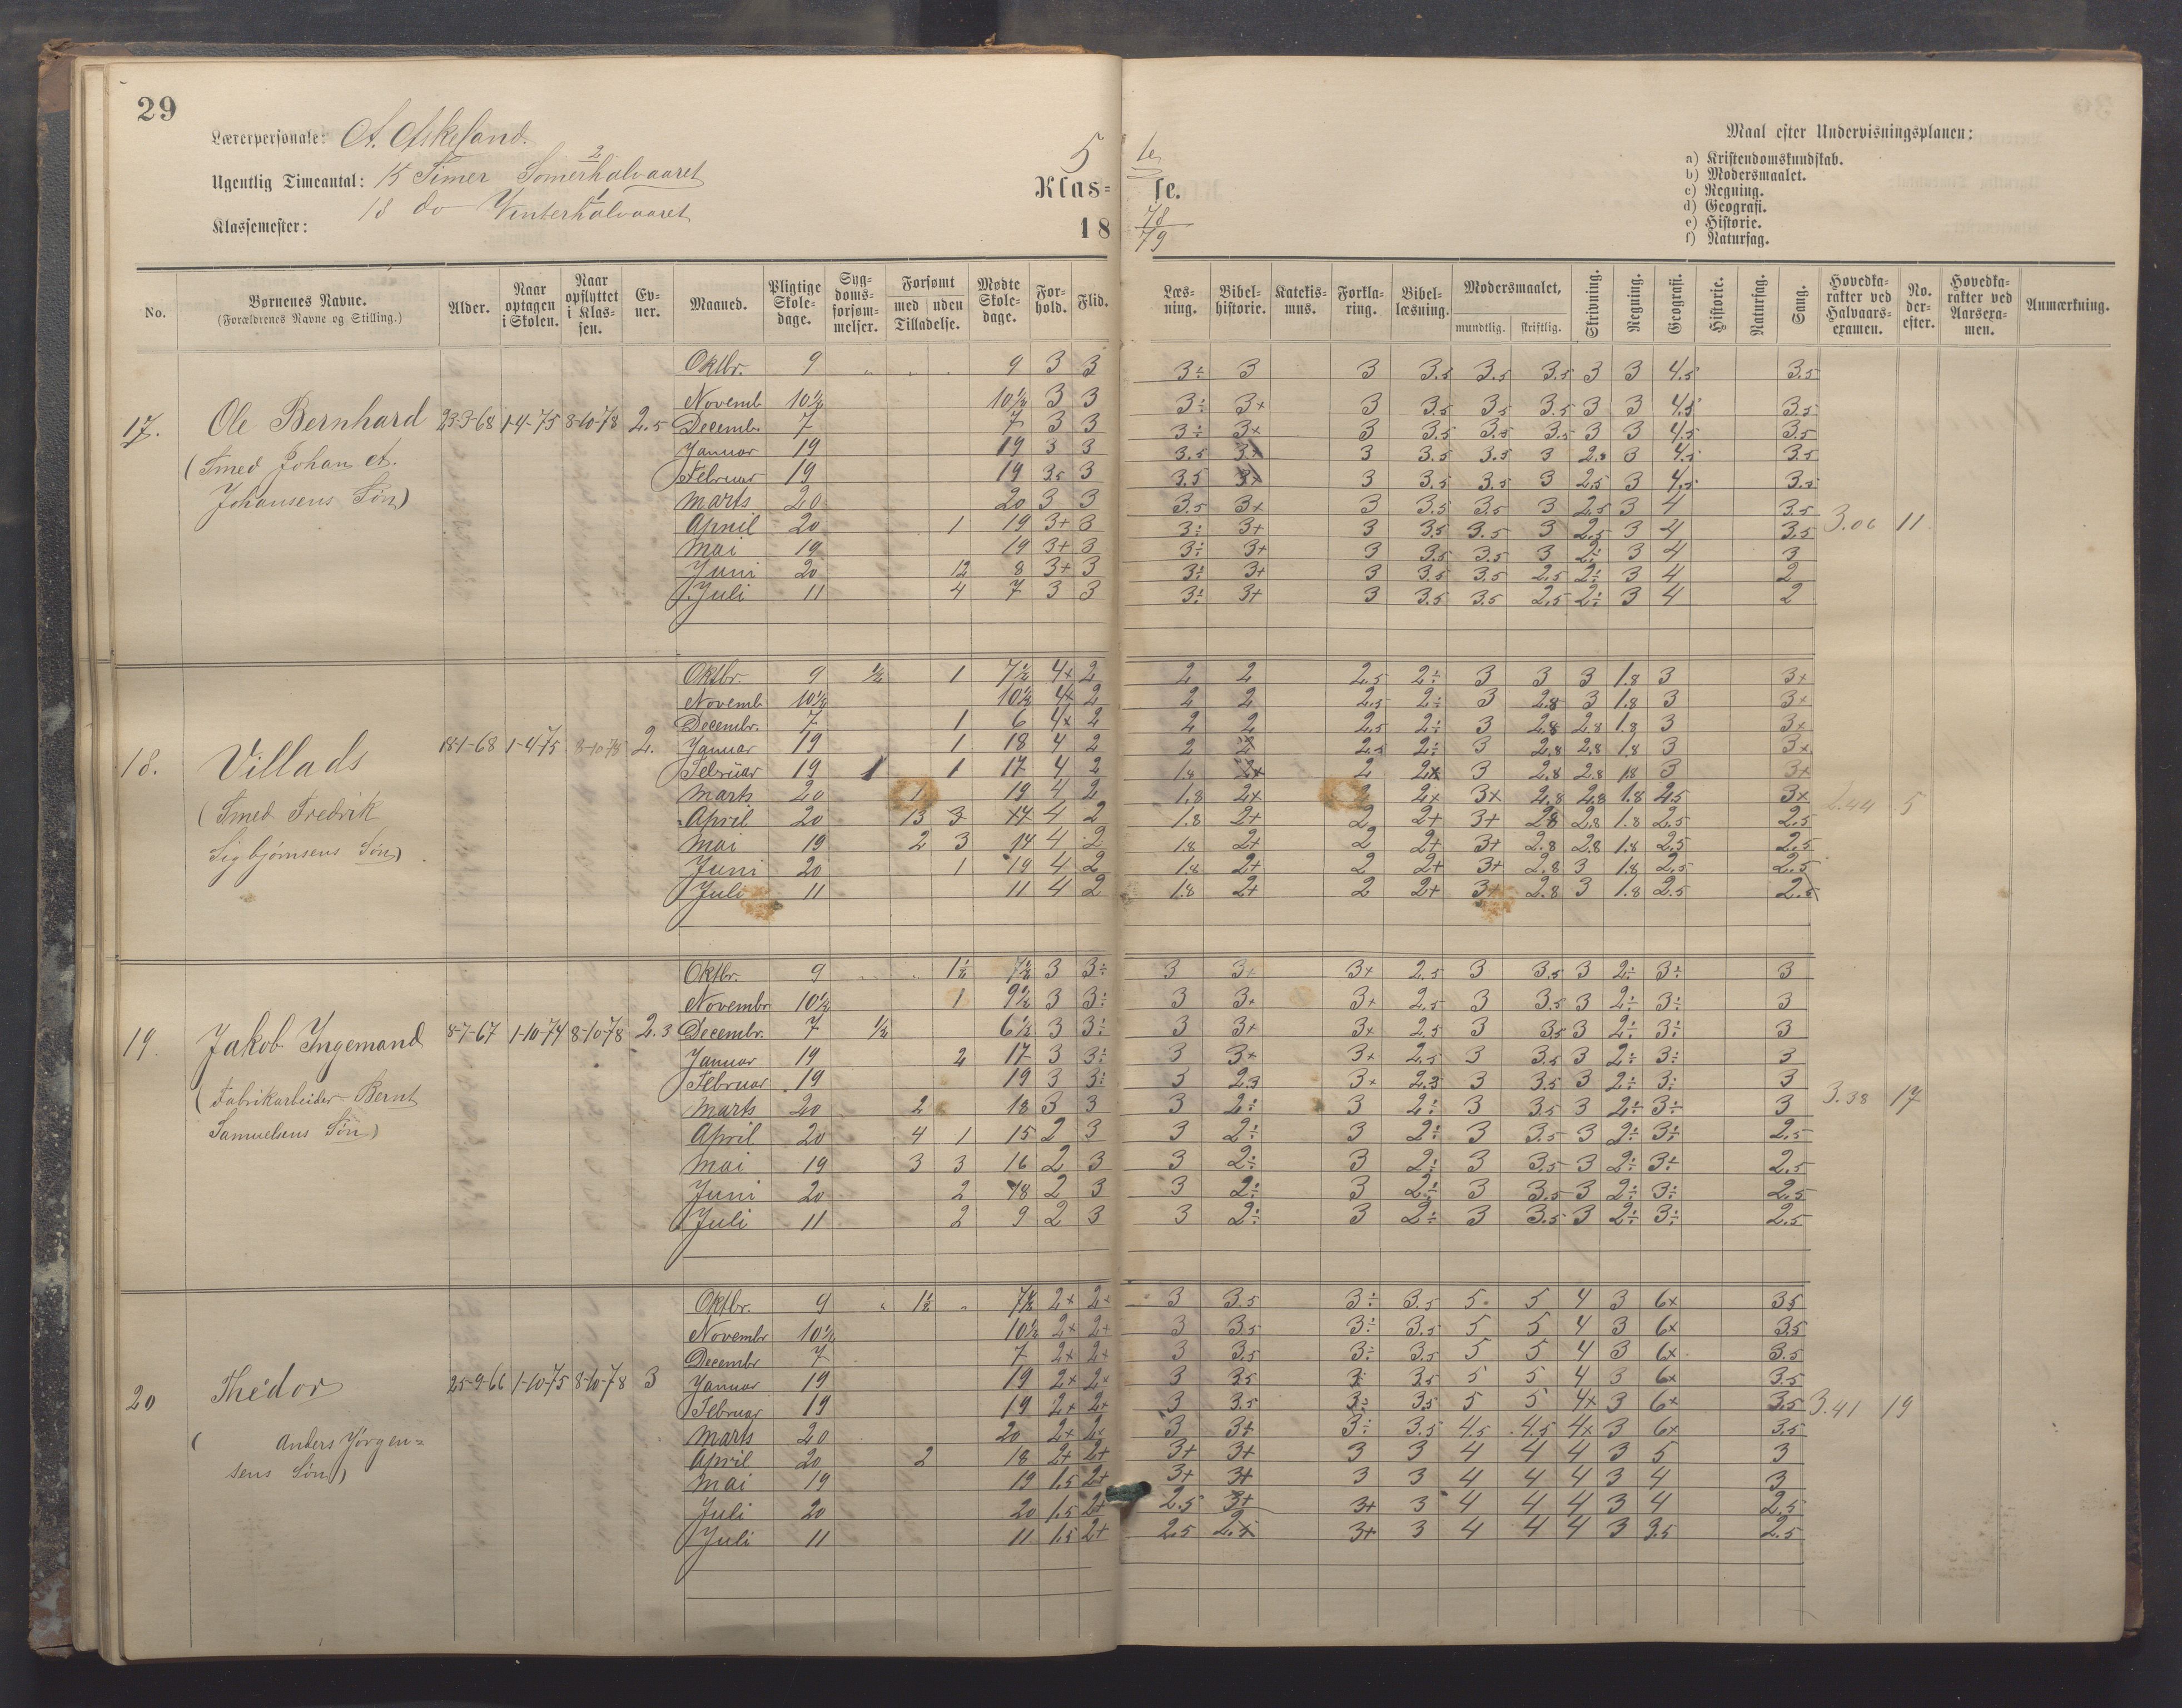 29
Lærerpersonale: A. Askeland.
Ugentlig Timeantal: 15 Timer Somerhalvaaret 2
18 do Vinterhalvaaret 1
Klassemester:
5te
Klas= se.
18 78/79
Maal efter Undervisningsplanen:
a) Kristendomskundskab.
b) Modersmaalet.
c) Regning.
d) Geografi.
e) Historie.
f) Naturfag.
No. | Børnenes Navne. (Forældrenes Navne og Stilling.) | Alder. | Naar optagen i Skolen. | Naar opflyttet i Klas-sen. | Ev-ner. | Maaned. | Pligtige Skole-dage. | Syg-doms-forsøm-melser. | Forsømt med | uden Tilladelse. | Mødte Skole-dage. | For-hold. | Flid. | Læs-ning. | Bibel-historie. | Katekis-mus. | Forkla-ring. | Bibel-læsning. | Modersmaalet, mundtlig. | skriftlig. | Skrivning. | Regning. | Geografi. | Historie. | Naturfag. | Sang. | Hovedka-rakter ved Halvaars-examen. | No. der-efter. | Hovedka-rakter ved Aarsexa-men. | Anmærkning.
17. Ole Bernhard 23-3-68 1-4-75 8-10-78 2.5
(Smed Johan A.
Johansens Søn)
Oktbr. 9 " " " 9 3 3 3÷ 3 3 3.5 3.5 3.5 3 3 4.5 3.5
Novemb. 10½ 10½ 3 3 3÷ 3+ 3 3.5 3.5 3.5 3 3 4.5 3.5
Decemb. 7 7 3 3 3÷ 3+ 3 3.5 3.5 3.5 3 3 4.5 3.5
Januar 19 19 3 3 3.5 3+ 3 3.5 3.5 3 2.8 3 4.5 3.5
Februar 19 19 3.5 3 3.5 3+ 3 3.5 3.5 3 2.5 3 4.5 3.5
Marts 20 20 3 3 3.5 3+ 3 3.5 3.5 3 2.5 3 4 3.5
April 20 1 19 3+ 3 3÷ 3+ 3 3.5 3.5 3 2.5 3 4 3.5
Mai 19 19 3+ 3 3÷ 3+ 3 3.5 3.5 3 2÷ 3 4 3
Juni 20 12 8 3+ 3 3÷ 3+ 3 3.5 3.5 2.5 2÷ 3 4 2
Juli 11 4 7 3 3 3÷ 3+ 3 3.5 3.5 2.5 2÷ 3 4 2
3.06 11
18. Villads 18-1-68 1-4-75 8-10-78 2.
(Smed Fredrik
Sigbjørnsens Søn)
Oktbr. 9 ½ 1 7½ 4+ 2 2 2 2.5 2÷ 3 3 3 1.8 3 3+
Novemb. 10½ 10½ 4+ 2 2 2 2.5 2÷ 3 2.8 3 1.8 3 3+
Decembr. 7 1 6 4+ 2 2 2 2.5 2÷ 3 2.8 2.8 1.8 3 3+
Januar 19 1 18 4 2 2 2 2.5 2÷ 3 2.8 2.8 1.8 3 3+
Februar 19 1 1 17 4 2 1.8 2+ 2 2+ 3 2.8 2.8 1.8 3 3+
Marts 20 1 19 4 2 1.8 2+ 2 2+ 3+ 2.8 2.8 1.8 2.5 3+
April 20 13 3 14 4 2 1.8 2+ 2 2+ 3+ 2.8 2.8 1.8 2.5 2.5
Mai 19 2 3 14 4 2 1.8 2+ 2 2+ 3+ 2.8 2.8 1.8 2.5 2.5
Juni 20 1 19 4 2 1.8 2+ 2 2+ 3+ 2.8 3 1.8 2.5 2.5
Juli 11 11 4 2 1.8 2+ 2 2+ 3+ 2.8 3 1.8 2.5 2.5
2.44 5
19. Jakob Ingemand 8-7-67 1-10-74 8-10-78 2.3
(Fabrikarbeider Bernt
Samuelsens Søn)
Oktbr. 9 1½ 7½ 3 3÷ 3 3+ 3+ 2.5 3 3.5 3 2÷ 3÷ 3
Novembr 10½ 1 9½ 3 3÷ 3 3+ 3+ 2.5 3 3.5 3 2÷ 3÷ 3
Decembr. 7 ½ 6½ 3 3÷ 3 3+ 3+ 2.5 3 3.5 3 2÷ 3÷ 3
Januar 19 2 17 3 3÷ 3 3+ 3+ 2.5 3 3.5 3 2÷ 3÷ 3
Februar 19 19 3 3÷ 3 2.3 3+ 2.3 3 3.5 3 2÷ 3÷ 3
Marts 20 2 18 3 3 3 2÷ 3 2÷ 3 3.5 3 2÷ 3÷ 3
April 20 4 1 15 2 3 3 2÷ 3 2÷ 3 3.5 3 2÷ 3÷ 2.5
Mai 19 3 3 16 2 3 3 2÷ 3 2÷ 3 3.5 3 2÷ 3÷ 2.5
Juni 20 2 18 2 3 3 2÷ 3 2÷ 3 3.5 3 2÷ 3÷ 2.5
Juli 11 2 9 2 3 3 2÷ 3 2÷ 3 3.5 3 2÷ 3÷ 2.5
3.38 17
20 Thedor 25-9-66 1-10-75 8-10-78 3
( Anders Jørgen=
sens Søn)
Oktbr. 9 " 1½ " 7½ 2+ 2+ 3 3.5 3÷ 3.5 5 5 4 3 6+ 3.5
Novembr 10½ 10½ 2+ 2+ 3 3.5 3÷ 3.5 5 5 4 3 6+ 3.5
Decembr 7 7 2+ 2+ 3 3.5 3÷ 3.5 5 5 4 3 6+ 3.5
Januar 19 19 2+ 2+ 3 3.5 3÷ 3.5 5 5 4 3 6+ 3.5
Februar 19 19 2+ 2+ 3 3.5 3÷ 3.5 5 5 4+ 3 6+ 3.5
Marts 20 20 2+ 2+ 3 3+ 3÷ 3.5 4.5 4.5 4+ 3 6+ 3.5
April 20 2 18 2+ 2+ 3+ 3+ 3 3 4 4 4 3 5 3
Mai 19 19 1.5 2+ 3+ 3+ 3 3 4 4 4 3 4 3
Juli 20 20 1.5 2+ 2.5 3+ 3+ 3 4 4 4 3 4 2.5
Juli 11 11 1.5 2+ 2.5 2.5 3+ 3 4 4 4 3 3.5 2.5
3.41 19